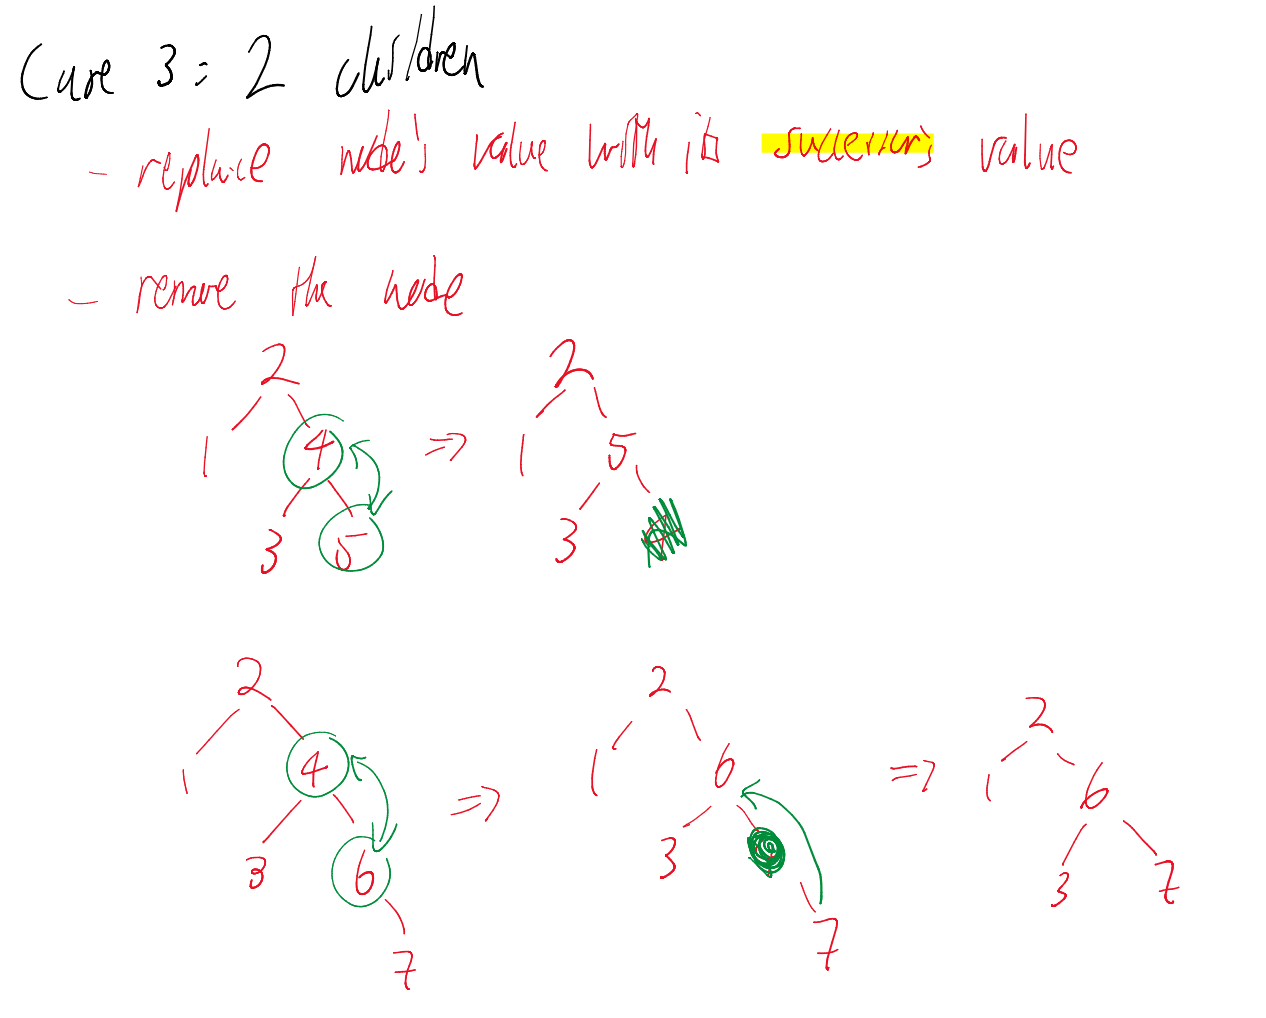 Case 3: 2 children
- replace node's value with its successor's value
- remove the node
2 2
1 4 => 1 5
3 5 3
2 2 2
1 4 => 1 6 => 1 6
3 6 3 3 7
7 7